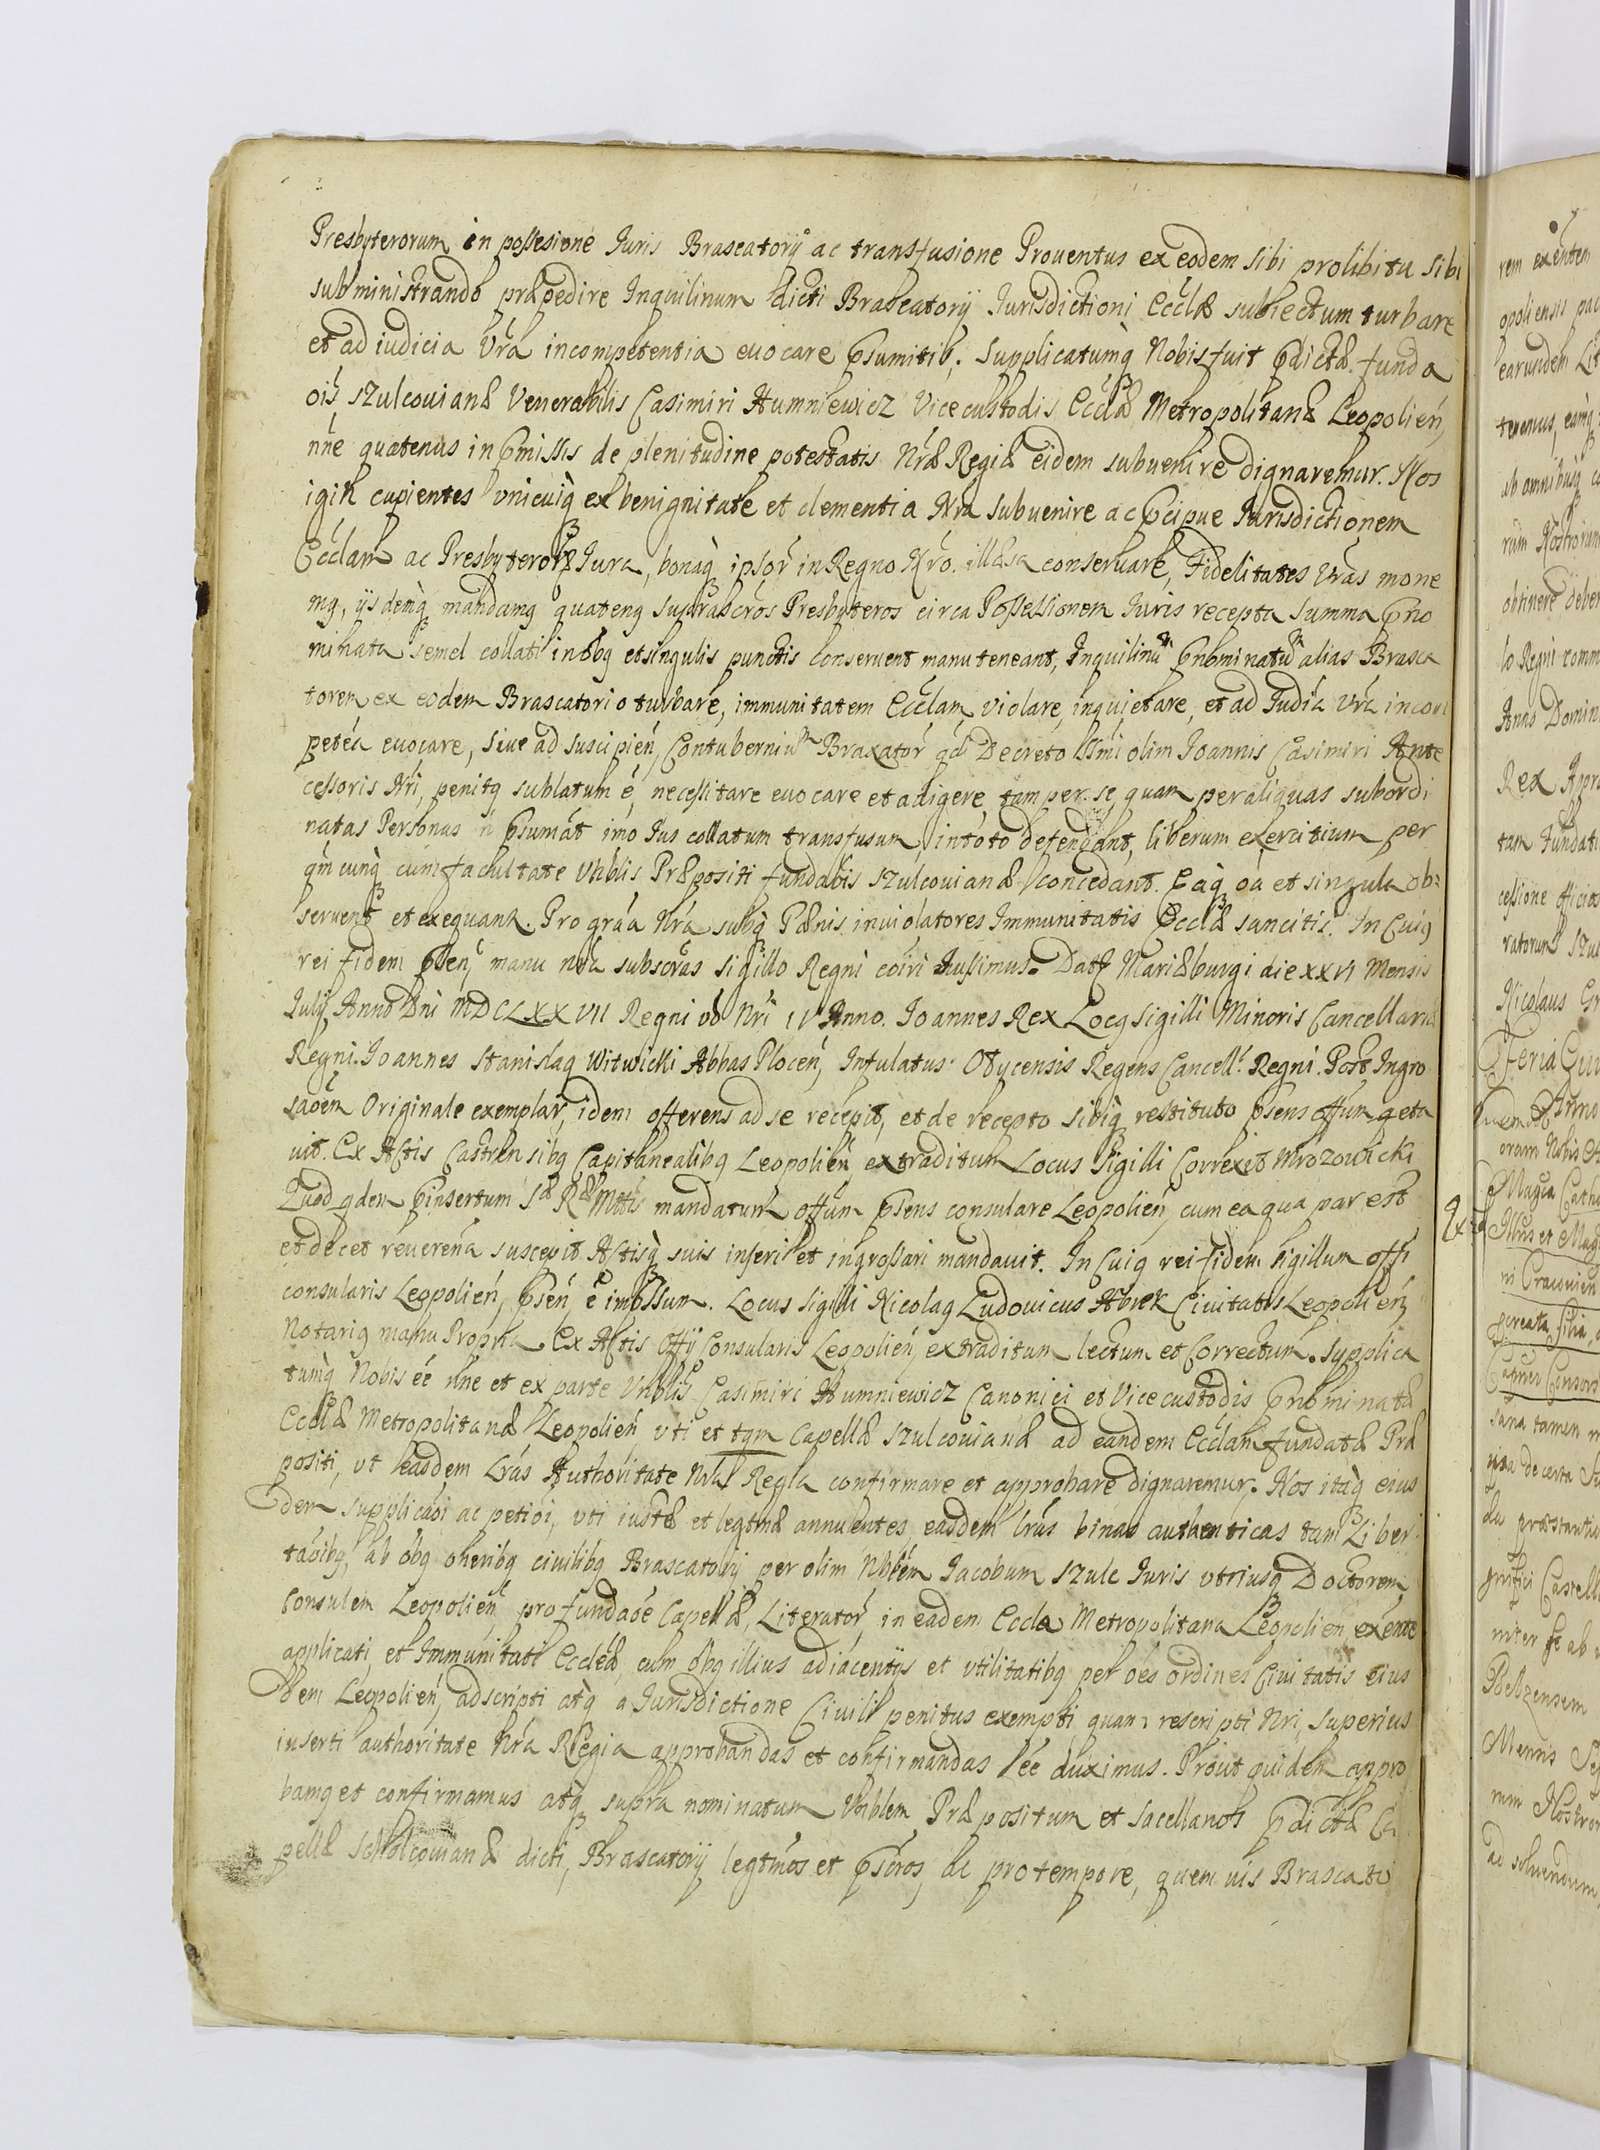 Presbyterorum in possesione Iuris Braseatorij ac transfusione Prouentus ex eodem sibi prolibitu sibi
subministrando præpedire Inquilinum dicti Braseatorij Iurisdictioni Ecclæ subiectum turbare
et ad iudicia Vra incompetentia euocare psumitis; Supplicatumq Nobis fuit pdictæ funda
ois Szulcouianæ Venerabilis Casimiri Humniewicz Vicecustodis Ecclæ Metropolitanæ Leopolień,
nne quatenus in pmissis de plenitudine potestatis Nræ Regiæ eidem subuenire dignaremur. Nos
igitr cupientes vnicuiq ex benignitate et clementia Nra subuenire ac pcipue Iurisdictionem
Ecclam ac Presbyteror Iura, bonaq ipsor in Regno Nro. illæsa conseruare, Fidelitates Vras mone
mg, ijsdemq mandamg quateng suprascros Presbyteros circa Possessionem Iuris recepta summa pno
minata semel collati in obg et singulis punctis conseruent manuteneant, Inquilinū pnominatū alias Brasea
torem ex eodem Brascatorio turbare, immunitatem Ecclam, violare, inquietare, et ad Iudia Vra incom
petéa euocare, siue ad suscipień, Contuberniū Braxator qd Decreto Smi olim Ioannis Casimiri Ante
cessoris Nri, penitg sublatum é, necessitare euocare et adigere tam per se quam per aliquas subordi
natas Personas n psumát imo Ius collatum transfusum, in toto defendant, liberum exercitium per
qmcunq cum facultate Vnblis Præpositi fundaois Szulcouianæ concedant. Eaq oa et singula ob=
seruent et exequant. Pro graa Nra subq Pænis in violatores Immunitatis Ecclæ sancitis. In Cuig
rei fidem psen, manu nra subscras sigillo Regni coiri iussimus. Dat Mariæburgi die XXVI Mensis
Iulij Anno Dni MDCLXXVII Regni vo Nri IV Anno. Ioannes Rex Locg sigilli Minoris Cancellariæ
Regni. Ioannes Stanislag Witwicki Abbas Plocen, Infulatus Otycensis Regens Cancell. Regni. Post Ingro
saoem Originale exemplar, idem offerens ad se recepit, et de recepto sibiq restituto psens offum qeta
uit. Ex Actis Castrensibg Capitanealibg Leopolien extraditum Locus Sigilli Correxit Mrozowicki
Quod qdem pinsertum Sæ Ræ Mttis mandatum offum psens consulare Leopolien, cum ea qua par est
et decet reuerena suscepit Actisq suis inseri et ingrossari mandauit. In Cuig rei fidem sigillum offi
consularis Leopolien, psen, é impssum. Locus Sigilli Nicolag Ludouicus Abrek Ciuitatis Leopolien,
Notarig manu Propria. Ex Actis Offij Consularis Leopolien, extraditum lectum et Correctum. Supplica
tumq Nobis éé nne et ex parte Vnblis Casimiri Humniewicz Canonici et Vicecustodis pnominatæ
Ecclæ Metropolitanæ Leopolien vti et tqm Capellæ Szulcouianæ ad eandem Ecclam fundatæ Præ
positi, vt easdem Lras Authoritate Nra Regia confirmare et approbare dignaremur. Nos itaq eius
dem supplicaoi ac petioi, vti iustæ et legtmæ annuentes easdem lras binas authenticas tam Liber
taoibg, ab obg oneribg ciuilibg Brascatorij per olim Nblem Iacobum Szulc Iuris vtriusq Doctorem,
Consulem Leopolien pro fundaoe Capellæ, Literator, in eadem Eccla Metropolitana Leopolien, exénte
applicati, et Immunitati Eccleæ, cum obg illius adiacentijs et vtilitatibg per oes ordines Ciuitatis eius
dem Leopolien, adscripti atq a Iurisdictione Ciuili penitus exempti quam rescripti Nri, superius
inserti authoritate Nra Regia approbandas et confirmandas éé duximus. Prout quidem appro
bamg et confirmamus atq supra nominatum Vnblem Præpositum et sacellanos pdictæ Ca
pellæ Scholcouianæ dicti, Brascatorij legtmos et pscros, ac pro tempore, quem uis Brascato
rem exéntem
opoliensis
earundem Lit
tenemus, eamq
ab omnibusq
rum Nostrorum
obtinere deber
lo Regni comm
Annos Domin
Rex Appro
tam Fundati
cessione officios
ratorum Szul
Nicolaus Gr
Feria
Anno
oram Nobis
Magca Catha
Ex
Illtris et Mag
ni Cracouien
pcreata, filia,
Consors
sana tamen
de certa
præstantia
gnifici Castella
inter se ab
Belzensem
Mensis Sep
rum Nostror
ad soluendum